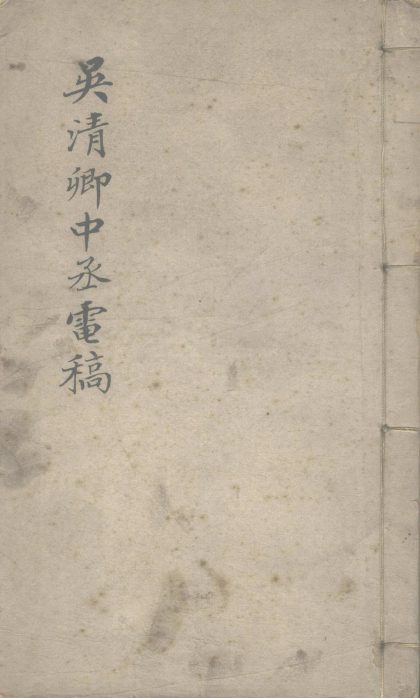 吳清卿中丞電稿